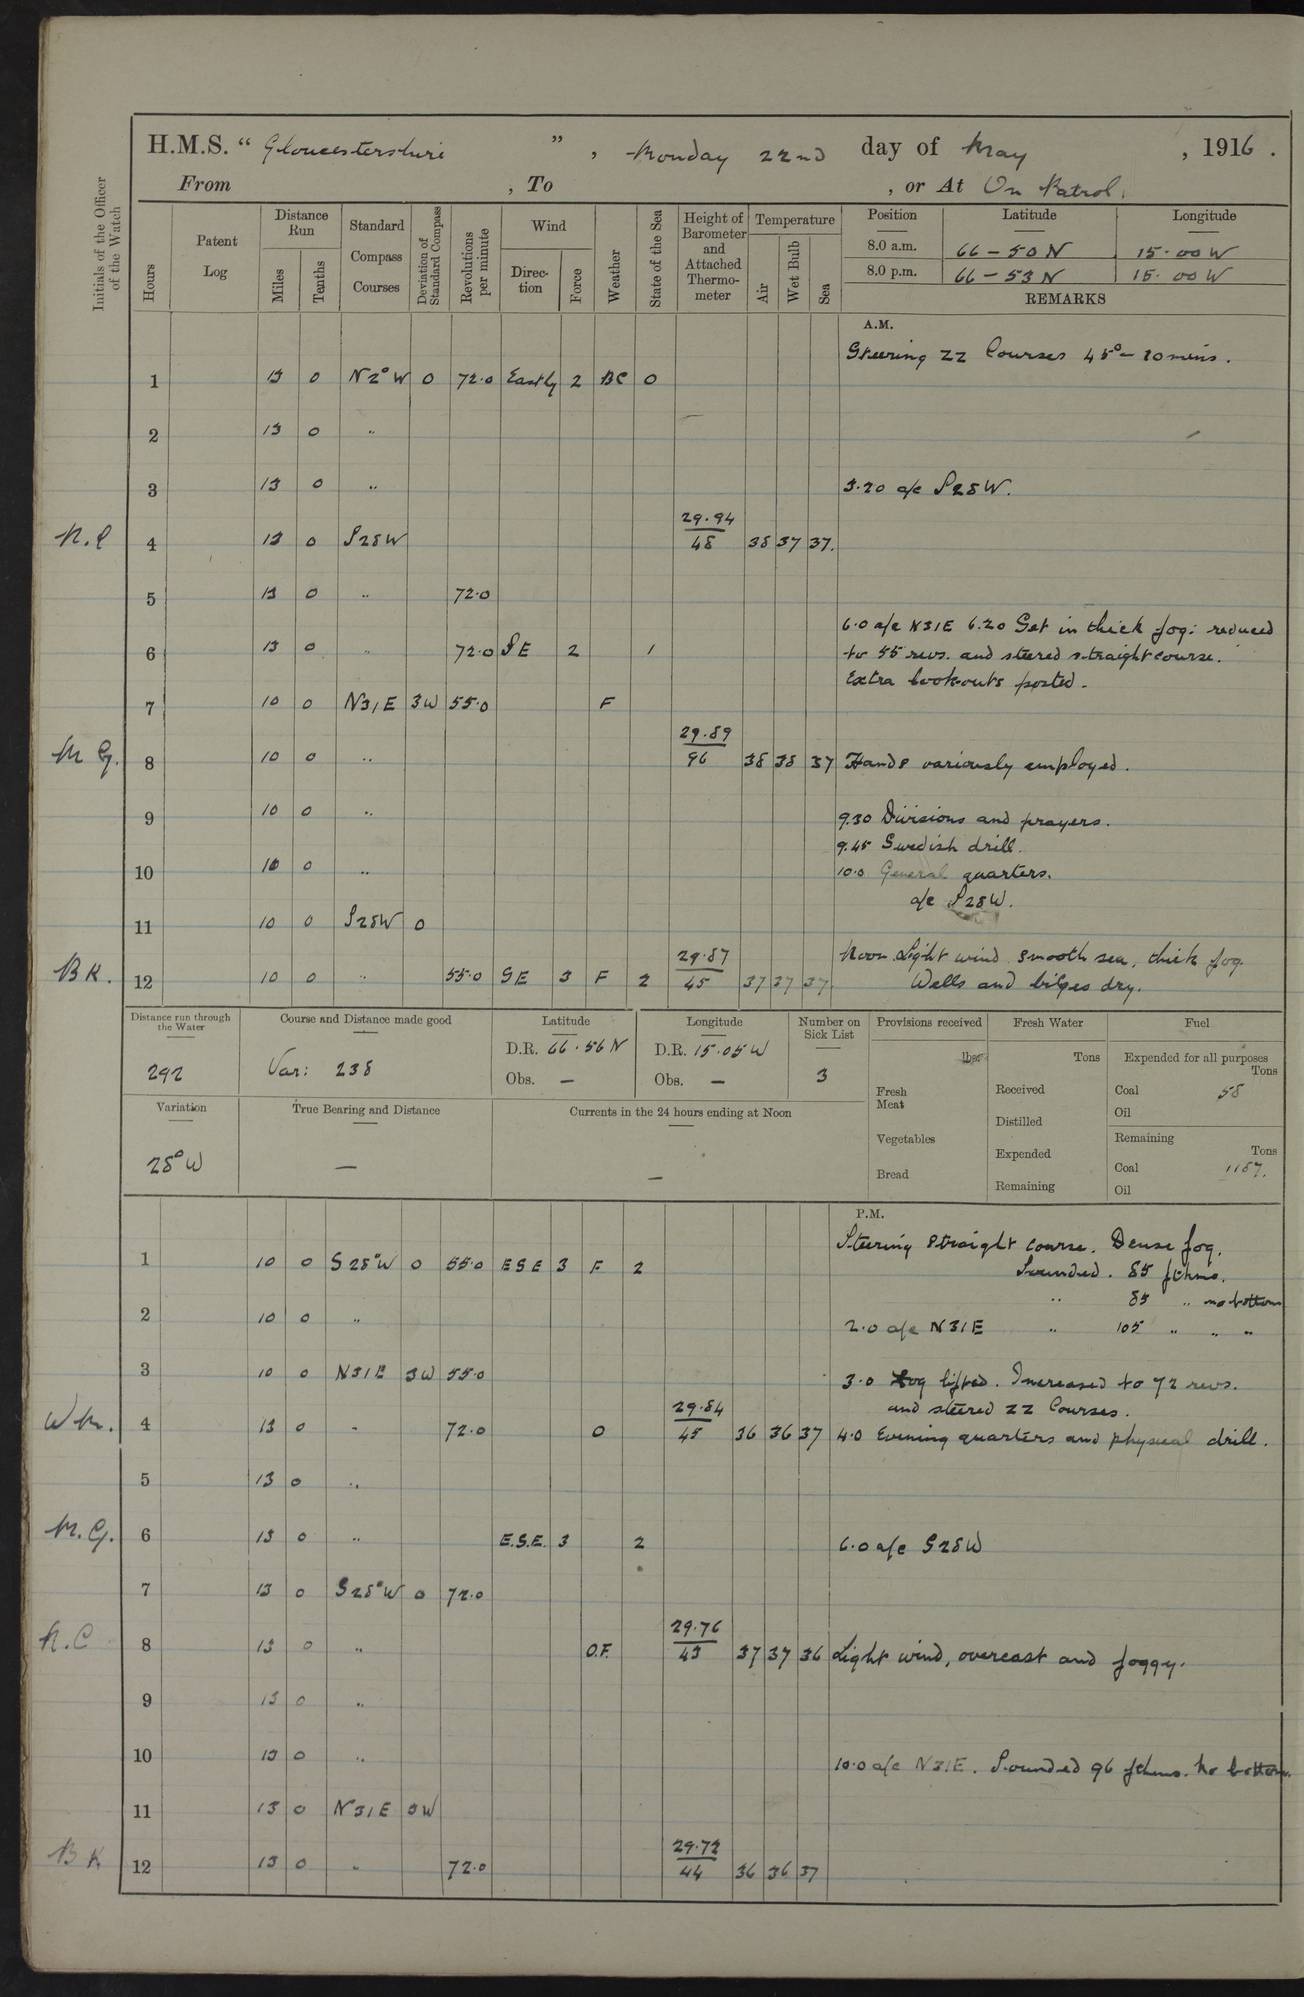 H.M.S. “ Gloucestershire ” , Monday 22nd day of May , 1916 .
From , To , or At On Patrol.
Initials of the Officer of the Watch
Hours
Patent Log
Distance Run
Miles
Tenths
Standard Compass Courses
Deviation of Standard Compass
Revolutions per minute
Wind
Direction
Force
Weather
State of the Sea
Height of Barometer and Attached Thermometer
Temperature
Air
Wet Bulb
Sea
Position Latitude Longitude
8.0 a.m. 66 – 50 N 15 · 00 W
8.0 p.m. 66 – 53 N 15 · 00 W
REMARKS
A.M.
Steering ZZ Courses 45° – 10 mins.
1 13 0 N2°W 0 72.0 Eastly 2 BC 0
2 13 0 "
3 13 0 " 3.20 a/c S28W.
29.94
N.C 4 13 0 S28W 48 38 37 37.
5 13 0 " 72.0
6.0 a/c N31E 6.20 Set in thick fog: reduced
6 13 0 " 72.0 SE 2 1 to 55 revs. and steered straight course.
Extra look-outs posted.
7 10 0 N31E 3W 55.0 F
29.89
M G. 8 10 0 " 96 38 38 37 Hands variously employed.
9 10 0 " 9.30 Divisions and prayers.
9.45 Swedish drill.
10 10 0 " 10.0 General quarters.
a/c S28W.
11 10 0 S28W 0
29.87 Noon Light wind smooth sea, thick fog
BK. 12 10 0 " 55.0 SE 3 F 2 45 37 37 37 Wells and bilges dry.
Distance run through the Water
292
Course and Distance made good
Var: 238
Latitude
D.R. 66 · 56 N
Obs. –
Longitude
D.R. 15 · 05 W
Obs. –
Number on Sick List
3
Provisions received
lbs.
Fresh Meat
Vegetables
Bread
Fresh Water
Tons
Received
Distilled
Expended
Remaining
Fuel
Expended for all purposes
Tons
Coal 58
Oil
Remaining
Tons
Coal 1187.
Oil
Variation
28°W
True Bearing and Distance
–
Currents in the 24 hours ending at Noon
–
P.M.
Steering straight course. Dense fog.
1 10 0 S28°W 0 55.0 ESE 3 F 2 Sounded. 85 fthms.
" 85 " no bottom
2 10 0 " 2.0 a/c N31E " 105 " " "
3 10 0 N31E 3W 55.0 3.0 Fog lifted. Increased to 72 revs.
29.84 and steered ZZ Courses.
4 13 0 " 72.0 O 45 36 36 37 4.0 Evening quarters and physical drill.
5 13 0 "
M.G. 6 13 0 " E.S.E. 3 2 6.0 a/c S28W
7 13 0 S28°W 0 72.0
29.76
N.C 8 13 0 " O.F. 43 37 37 36 Light wind, overcast and foggy.
9 13 0 "
10 13 0 " 10.0 a/c N31E. Sounded 96 fthms. No bottom.
11 13 0 N31E 3W
29.72
BK 12 13 0 " 72.0 44 36 36 37